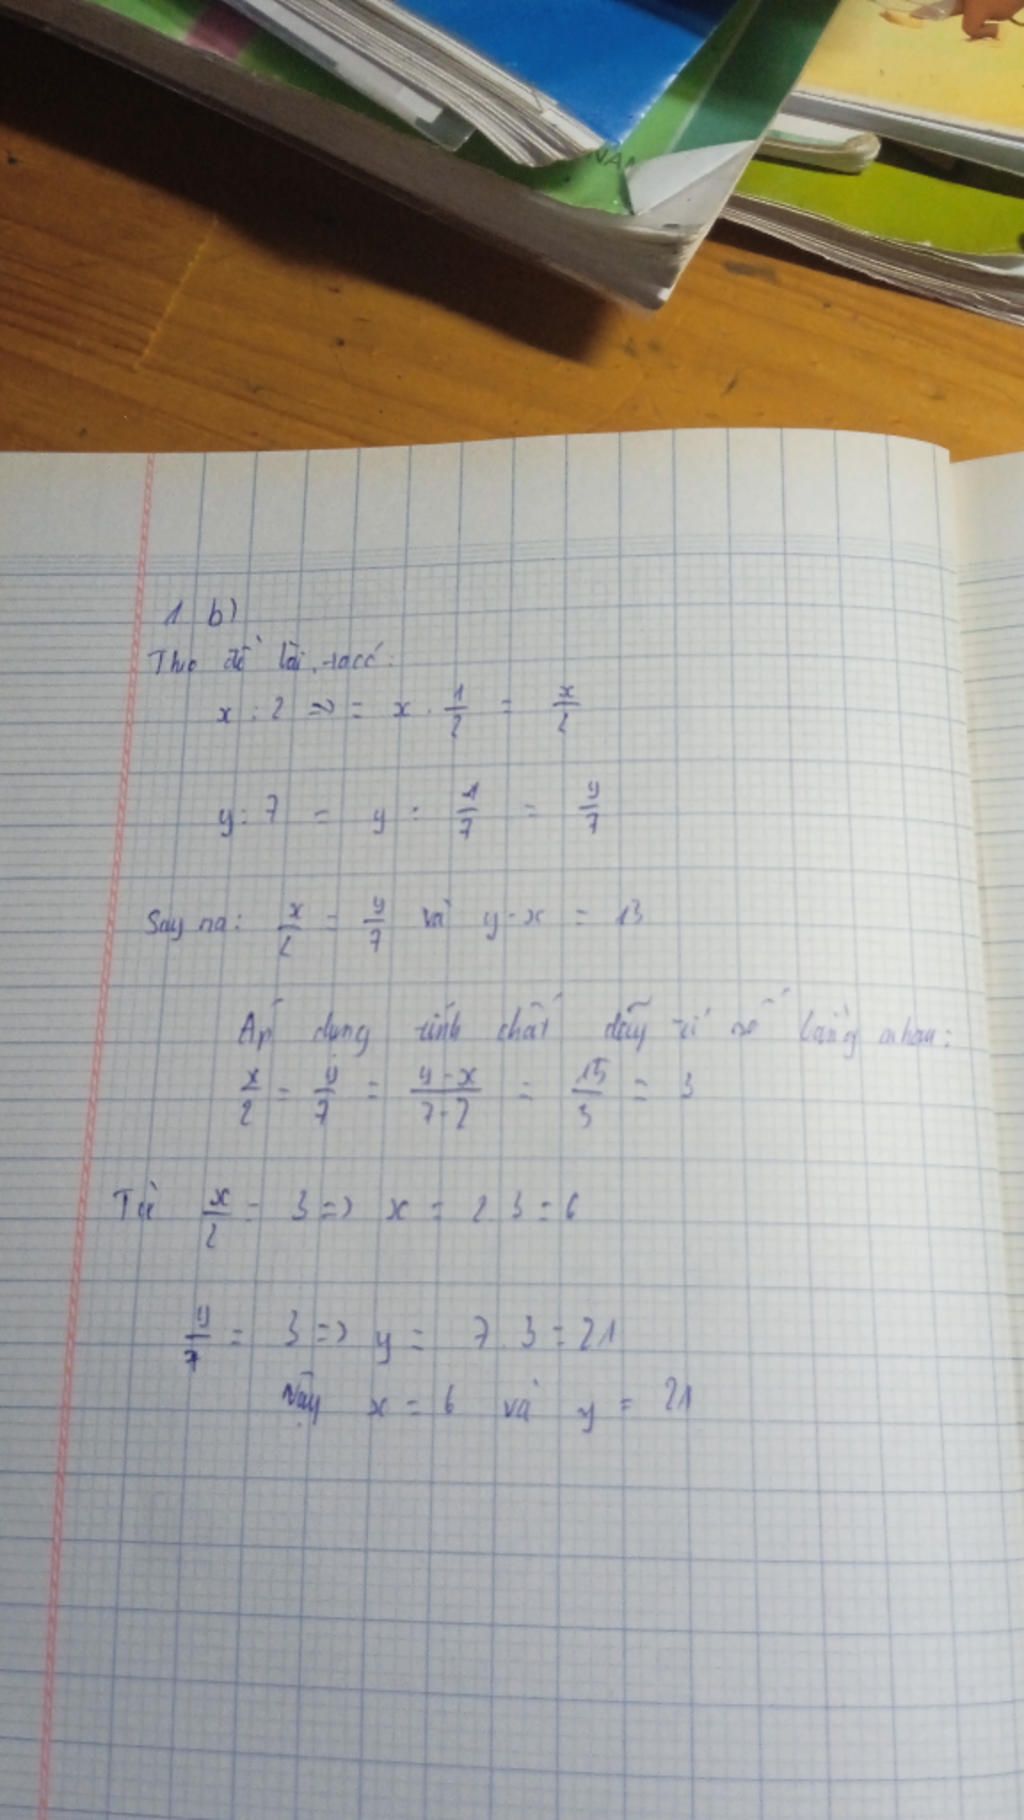 NAM
1 b)
Theo đề bài, ta có:
x : 2 => = x . 1/2 = x/2
y : 7 = y : 1/7 = y/7
Say ra: x/2 = y/7 và y - x = 13
Áp dụng tính chất dãy tỉ số bằng nhau:
x/2 = y/7 = y - x/7 - 2 = 15/5 = 3
Từ x/2 = 3 => x = 2 . 3 = 6
y/7 = 3 => y = 7 . 3 = 21
Vậy x = 6 và y = 21